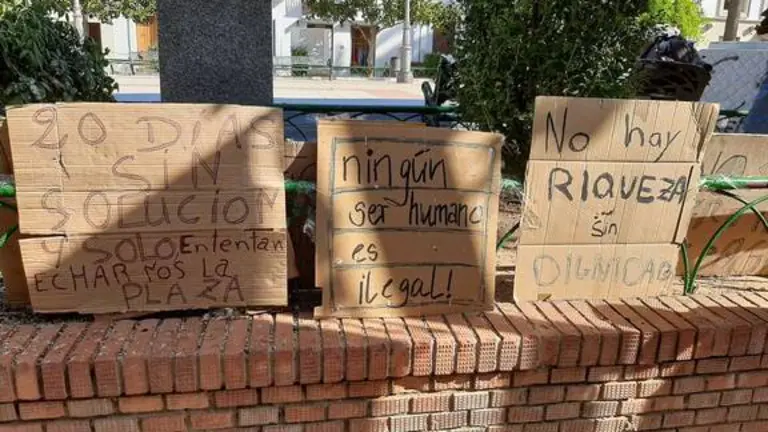 20 DIAS
SIN
SOLUCION
Y SOLO Ententan
ECHARNOS LA
PLAZA
ningún
ser humano
es
ilegal!
No hay
RIQUEZA
sin
DIGNIDAD